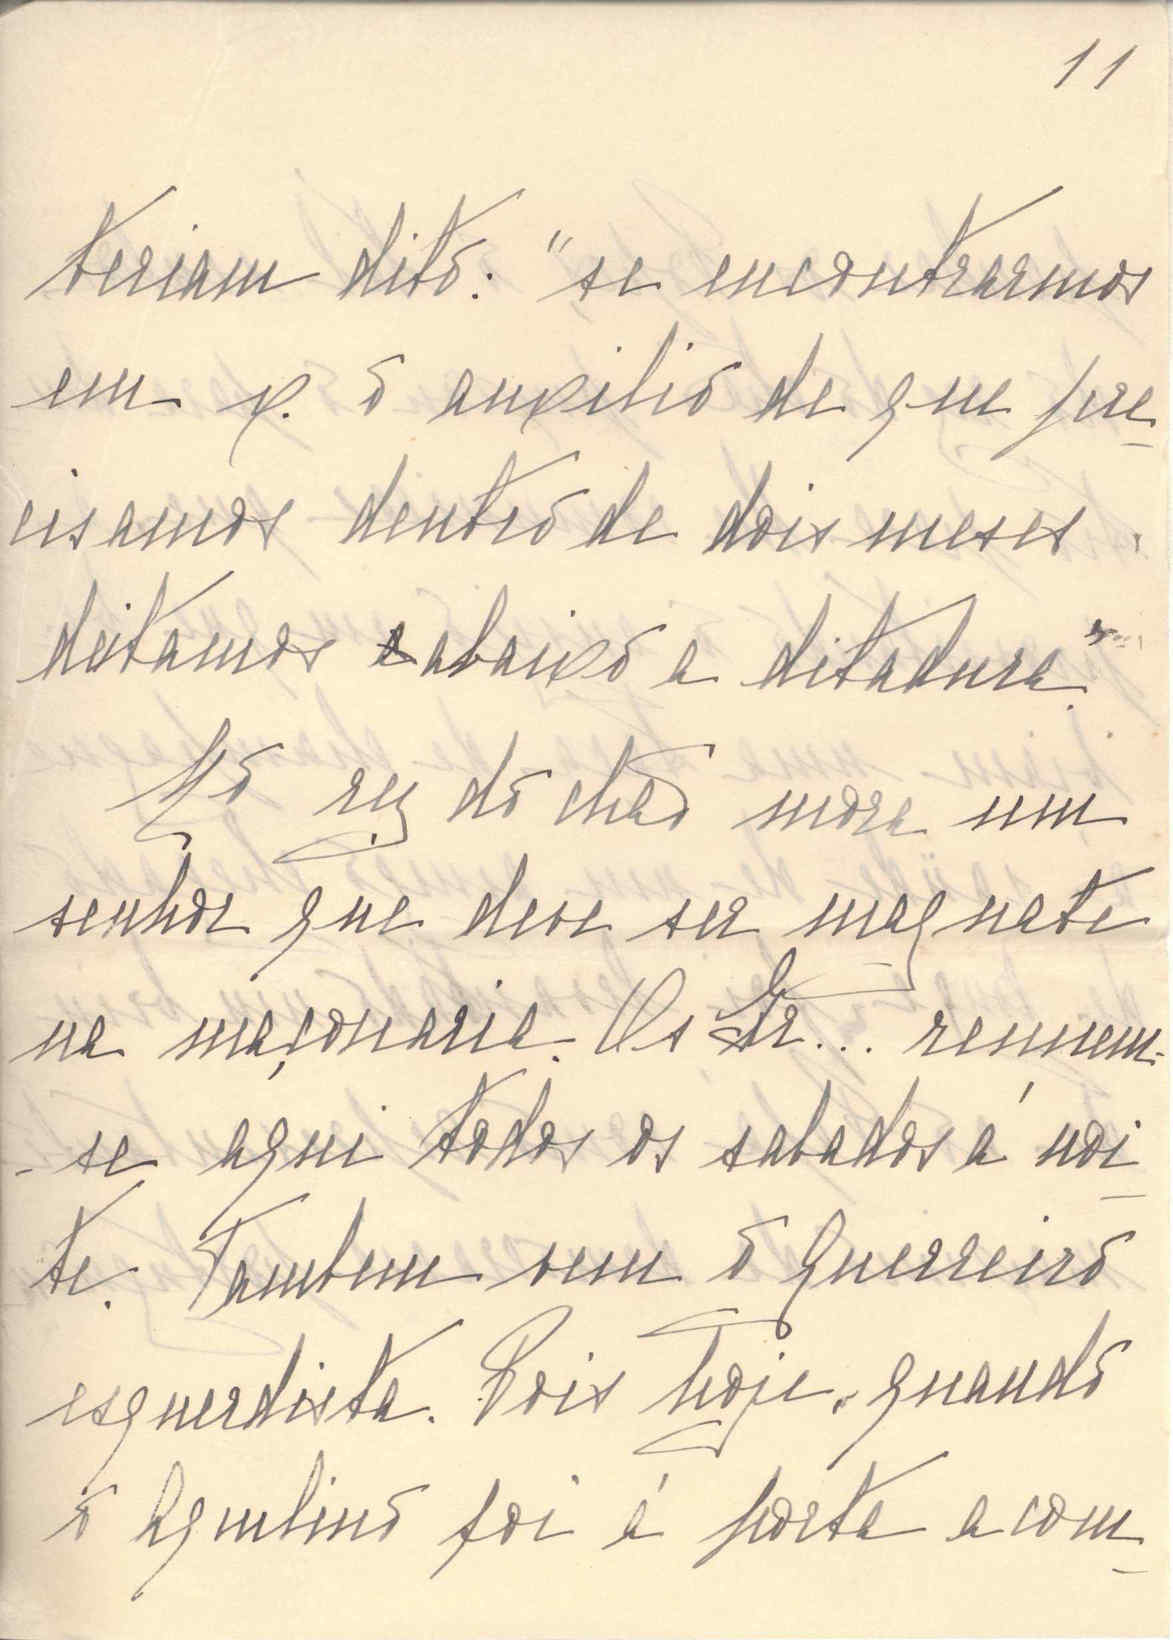 11
teriam dito: "se encontrarmos
em x. o auxilio de que pre-
cisamos dentro de dois meses
deitamos abaixo a ditadura."
No rez do chão mora um
senhor que deve ser magnate
na maçonaria. Os Ir... reunem-
-se aqui todos os sabados á noi-
te. Tambem vem o Guerreiro
esquerdista. Pois hoje, quando
o Aquilino foi á porta acom-